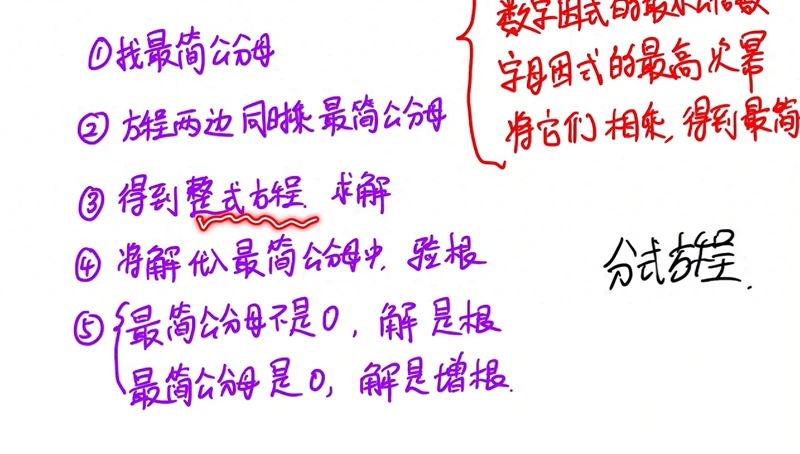 ①找最简公分母
②方程两边同时乘最简公分母
③得到整式方程.求解
④将解代入最简公分母中,验根
⑤最简公分母不是0,解是根
最简公分母是0,解是增根.
数字因式的最小公倍数
字母因式的最高次幂
将它们相乘,得到最简
分式方程.